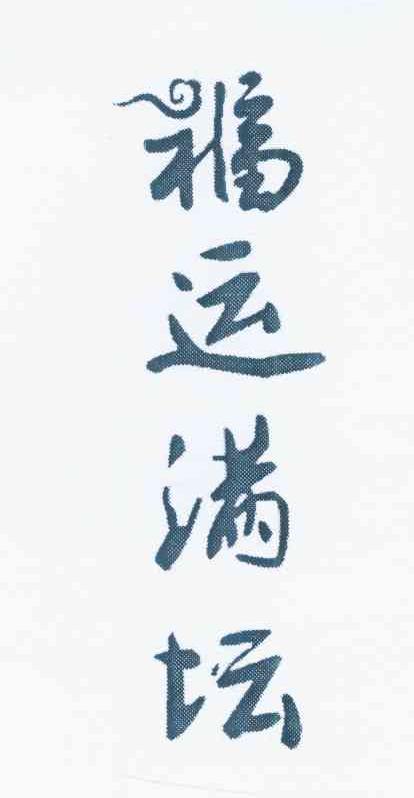 福运满坛